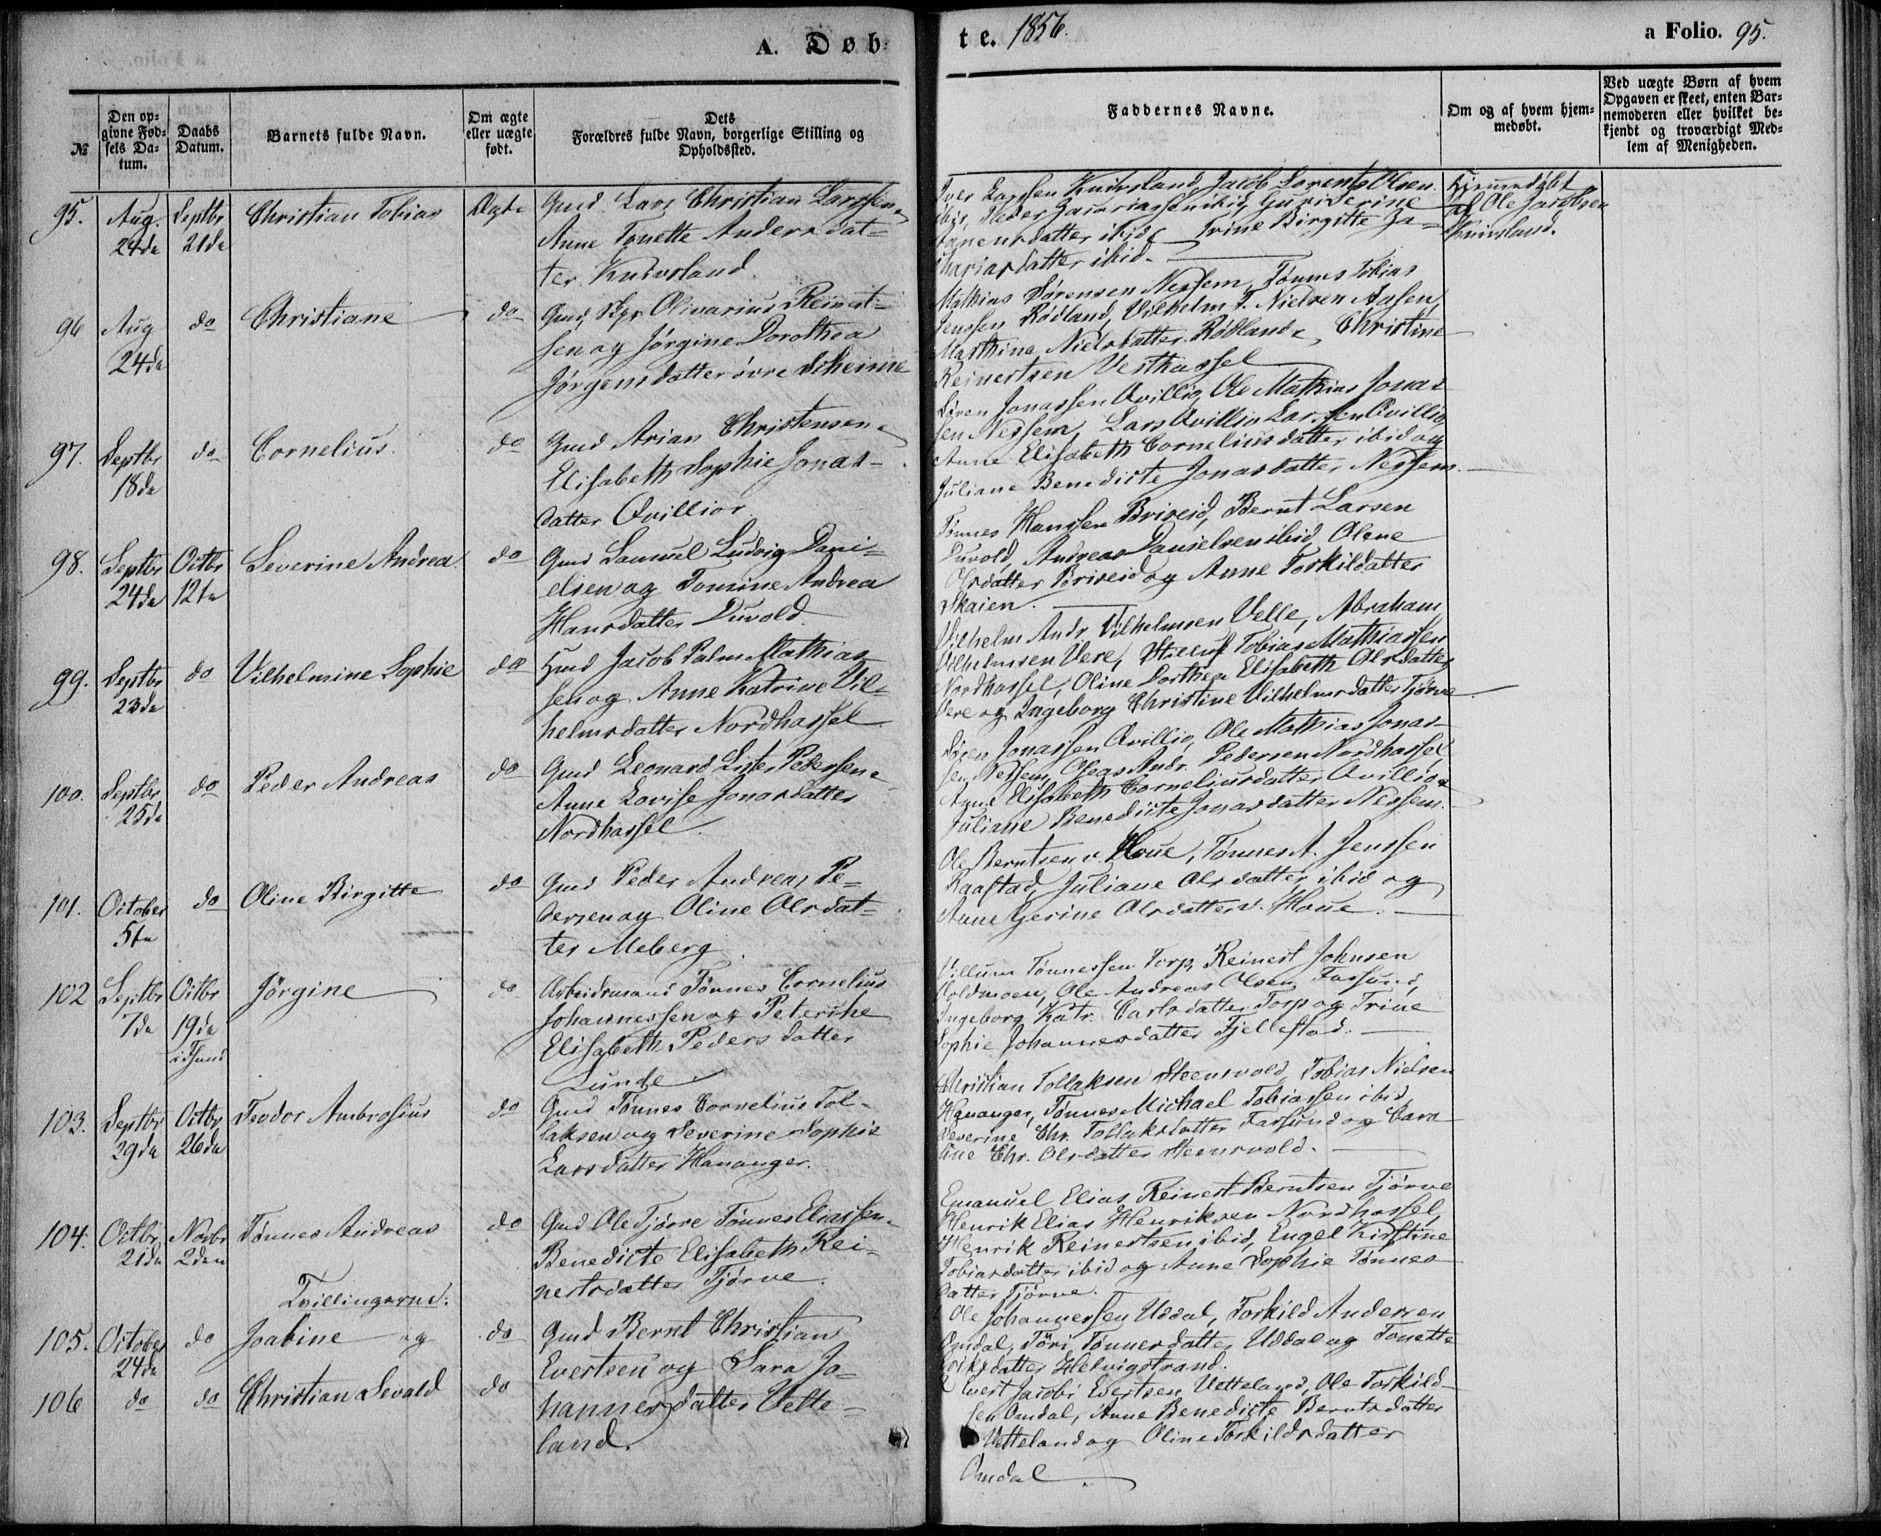 A. Døb-
te. 1856.
a Folio. 95.
№
Den op-
givne Fød-
sels Da-
tum.
Daabs
Datum.
Barnets fulde Navn.
Om ægte
eller uægte
født.
Dets
Forældres fulde Navn, borgerlige Stilling og
Opholdssted.
Faddernes Navne.
Om og af hvem hjem-
medøbt.
Ved uægte Børn af hvem
Opgaven er skeet, enten Bar-
nemoderen eller hvilket be-
kjendt og troværdigt Med-
lem af Menigheden.
95. Aug. 24de Septbr 21de Christian Tobias Ægte
Gmd. Lars Christian Larssen
Anne Tonette Andersdat-
ter Knivsland.
Iver Larssen Knivsland, Jacob Lorents Olsen
ibid, Peder
datter ibid Trine Birgitte Za-
chariasdatter ibid.
Hjemmedøbt
af Ole Jacobsen
Knivsland.
96 Aug 24de do Christiane do
Gmd, Olivarius Reinert-
sen og Jørgine Dorothea
Jørgensdatter övre Skeime
Mathias Sørensen Nessem, Tønnes Tobias
Jenssen Rødland, Vilhelm T. Nielsen Aasen,
Marthina Nielsdatter Rødland, Christine
Reinertsen Vesthassel
97. Septbr 18de do Cornelius. do
Gmd Arian Christensen
Elisabeth Sophie Jonas-
datter Qvillior
Søren Jonassen Qvillio, Ole Mathias Jonas-
sen Nessem, Lars Qvillio Larssen Qvillio,
Anne Elisabeth Corneliusdatter ibid og
Juliane Benedicte Jonasdatter Nessem.
98. Septbr 24de Octbr 12te Severine Andrea do
Gmd Samuel Ludvig Dani-
elsen og Tomine Andrea
Hansdatter Duvold.
Tønnes Hanssen Briseid, Bernt Larsen
Duvold, Andreas Danielsen ibid, Olene
Olsdatter Briseid og Anne Torkildatter
Skaien.
99. Septbr 23de do Vilhelmine Sophie do
Hmd Jacob Palm Mathias-
sen og Anne Katrine Vil-
helmsdatter Nordhassel
Vilhelm Andr. Vilhelmsen Velle, Abraham
Vilhelmsen Vere, Tobias Mathiassen
Nordhassel, Oline Dorthea Elisabeth Olsdatter
Vere og Ingeborg Christine Vilhelmsdatter Tjørve
100. Septbr 25de do Peder Andreas do
Gmd Leonard Lister Pedersen
Anne Lovise Jonasdatter
Nordhassel.
Søren Jonassen Qvillio, Ole Mathias Jonas-
sen Nessem, Oleas Andr. Pedersen Nordhassel
Anne Elisabeth Corneliusdatter Qvillio
Juliane Benedicte Jonasdatter Nessem.
101. October 5te do Oline Birgitte do
Gmd Peder Andreas Pe-
dersen og Oline Olsdat-
ter Meberg.
Ole Berntsen v. Houe, Tønnes A. Jenssen
Raastad, Juliane Olsdatter ibid og
Anne Gerine Olsdatter v. Houe.
102 Septbr 7de Octbr 19de i Fsund Jørgine do
Arbeidsmand Tønnes Cornelius
Johannessen og Peterike
Elisabeth Pedersdatter
Lunde
Villum Tønnessen Torp, Reinert Johnsen
Holdmoen, Ole Andreas Olsen Farsund,
Ingeborg Katr. Carlsdatter Torp og Trine
Sophie Johannesdatter Fjellestad.
103. Septbr 29de Octbr 26de Teodor Ambrosius do
Gmd Tønnes Cornelius Tol-
laksen og Severine Sophie
Larsdatter Hananger.
Christian Tollaksen Steensvold, Tobias Nielsen
Hananger, Tønnes Michael Tobiassen ibid,
Severine Chr. Tollaksdatter Farsund og Caro
line Chr. Olsdatter Steensvold.
104. Octbr 21de Novbr 2den Tønnes Andreas do
Gmd Ole Tjørve Tønnes Eliassen
Benedicte Elisabeth Rei-
nertsdatter Tjørve.
Emanuel Elias Reinert Berntsen Tjørve
Henrik Elias Henriksen Nordhassel,
Henrik Reinertsen ibid, Engel Kirstine
Tobiasdatter ibid og Anne Sophie Tønnes-
datter Tjørve.
Tvillingerne:
105. October 24de do Joabine og do
Gmd Bernt Christian
Evertsen og Sara Jo-
hannesdatter Vette-
land.
Ole Johannessen Uddal, Torkild Andersen
Omdal, Töri Tønnesdatter Uddal og Tonette
datter Helvigstrand.
106 do do Christian Sevald do
Evert Jacobi Evertsen Vetteland, Ole Torkild-
sen Omdal, Anne Benedicte Berntsdatter
Vetteland og Oline Torkildsdatter
Omdal